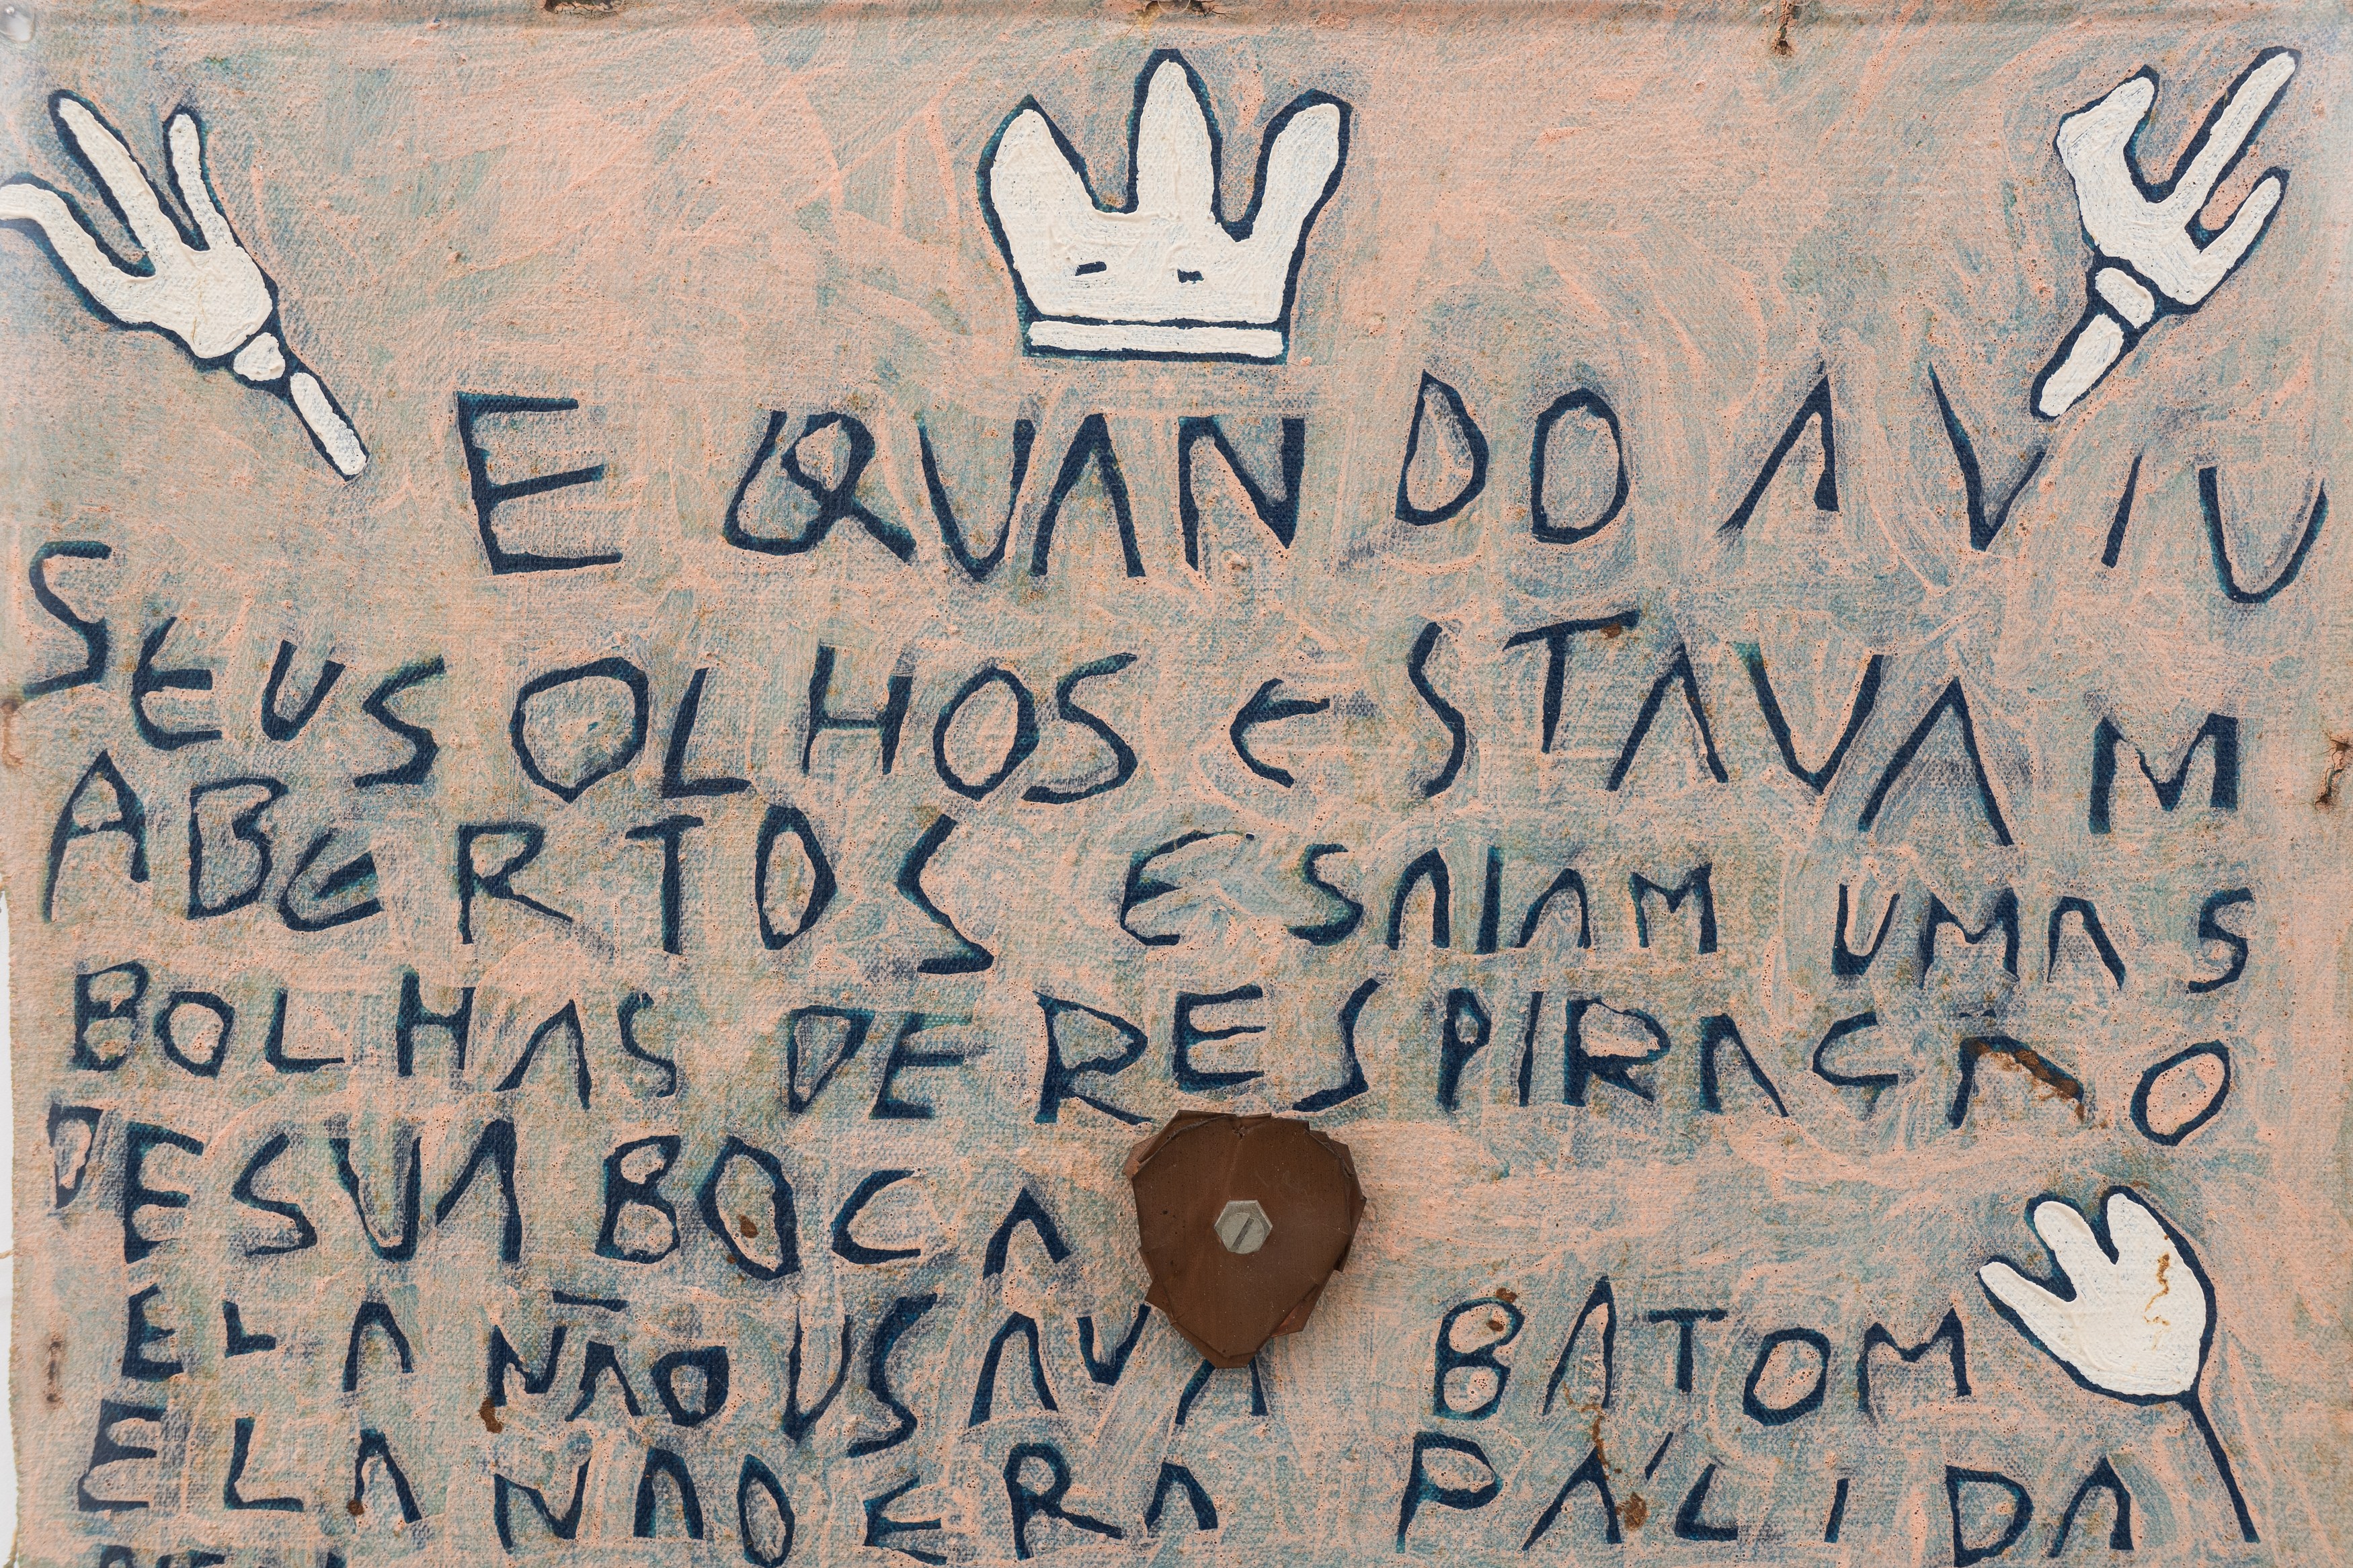 E QUANDO A VIU
SEUS OLHOS ESTAVAM
ABERTOS E SAIAM UMAS
BOLHAS DE RESPIRACAO
DE SUA BOCA
ELA NÃO USAVA BATOM
ELA NAO ERA PÁLIDA